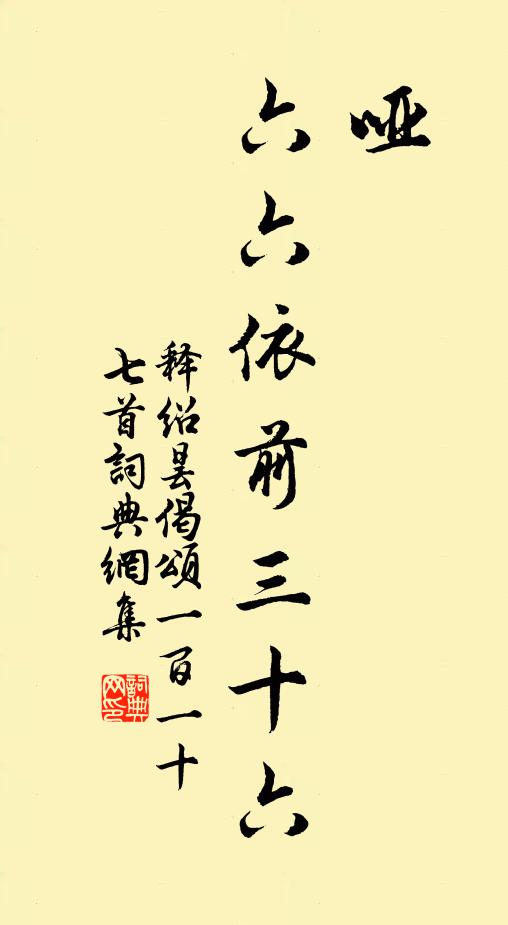 哑
六六依前三十六
释绍昙偈頌一百一十
七首詞典網集
詞典
网印